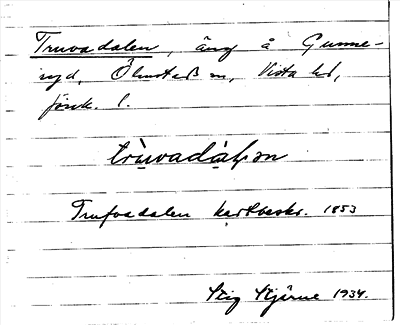 Truvadalen, äng å Gunne-
ryd, Ölmstad sn, Vista hd,
jönk. l.
trùvadàlən
Trufvadalen kartbeskr. 1853
Stig Stjärne 1934.